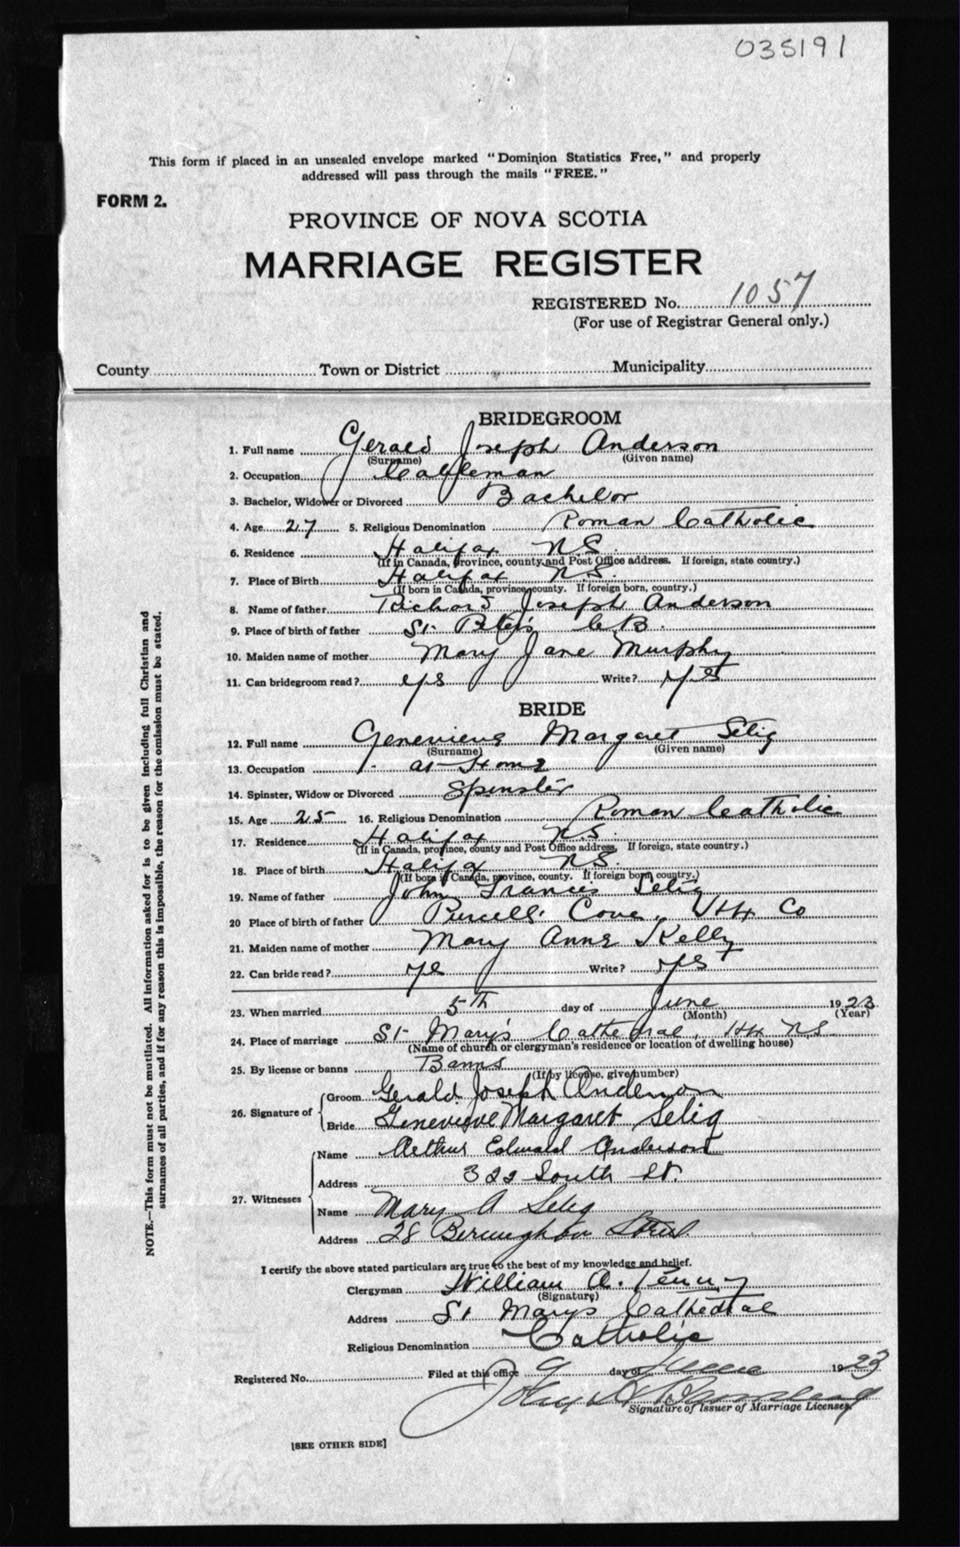 035191
This form if placed in an unsealed envelope marked "Dominion Statistics Free," and properly
addressed will pass through the mails "FREE."
FORM 2.
PROVINCE OF NOVA SCOTIA
MARRIAGE REGISTER
REGISTERED No. 1057
(For use of Registrar General only.)
County Town or District Municipality
BRIDEGROOM
1. Full name Gerald Joseph Anderson
(Surname) (Given name)
2. Occupation
3. Bachelor, Widower or Divorced Bachelor
4. Age 27 5. Religious Denomination Roman Catholic
6. Residence Halifax N.S.
(If in Canada, province, county and Post Office address. If foreign, state country.)
7. Place of Birth Halifax N.S.
(If born in Canada, province, county. If foreign born, country.)
8. Name of father Richard Joseph Anderson
9. Place of birth of father St. Peter's C.B.
10. Maiden name of mother Mary Jane Murphy
11. Can bridegroom read? yes Write? yes
BRIDE
12. Full name Genevieve Margaret Selig
(Surname) (Given name)
13. Occupation at Home
14. Spinster, Widow or Divorced Spinster
15. Age 25 16. Religious Denomination Roman Catholic
17. Residence Halifax N.S.
(If in Canada, province, county and Post Office address. If foreign, state country.)
18. Place of birth Halifax N.S.
(If born in Canada, province, county. If foreign born, country.)
19. Name of father John Francis Selig
20 Place of birth of father Purcell's Cove, Hfx Co
21. Maiden name of mother Mary Anne Kelly
22. Can bride read? yes Write? yes
23. When married 5th day of June 1923
(Month) (Year)
24. Place of marriage St. Mary's Cathedral, Hfx NS
(Name of church or clergyman's residence or location of dwelling house)
25. By license or banns Banns
(If by license, give number)
26. Signature of Groom Gerald Joseph Anderson
Bride Genevieve Margaret Selig
27. Witnesses Name Arthur Edward Anderson
Address 322 South St.
Name Mary A Selig
Address 28 Street
I certify the above stated particulars are true to the best of my knowledge and belief.
Clergyman William A. Penny
(Signature)
Address St Marys Cathedral
Religious Denomination Catholic
Registered No. Filed at this office 9 day of June 1923
Signature of Issuer of Marriage Licenses
[SEE OTHER SIDE]
NOTE.—This form must not be mutilated. All information asked for is to be given including full Christian and
surnames of all parties, and if for any reason this is impossible, the reason for the omission must be stated.